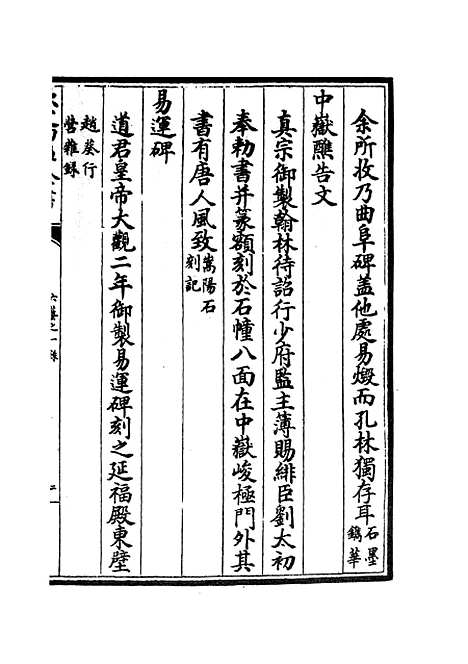 余所收乃曲阜碑蓋他處易燬而孔林獨存耳石墨鐫華
中嶽醮告文
真宗御製翰林待詔行少府監主薄賜緋臣劉太初
奉勅書并篆額刻於石幢八面在中嶽峻極門外其
書有唐人風致嵩陽石刻記
易運碑
道君皇帝大觀二年御製易運碑刻之延福殿東壁
趙葵行營雜録